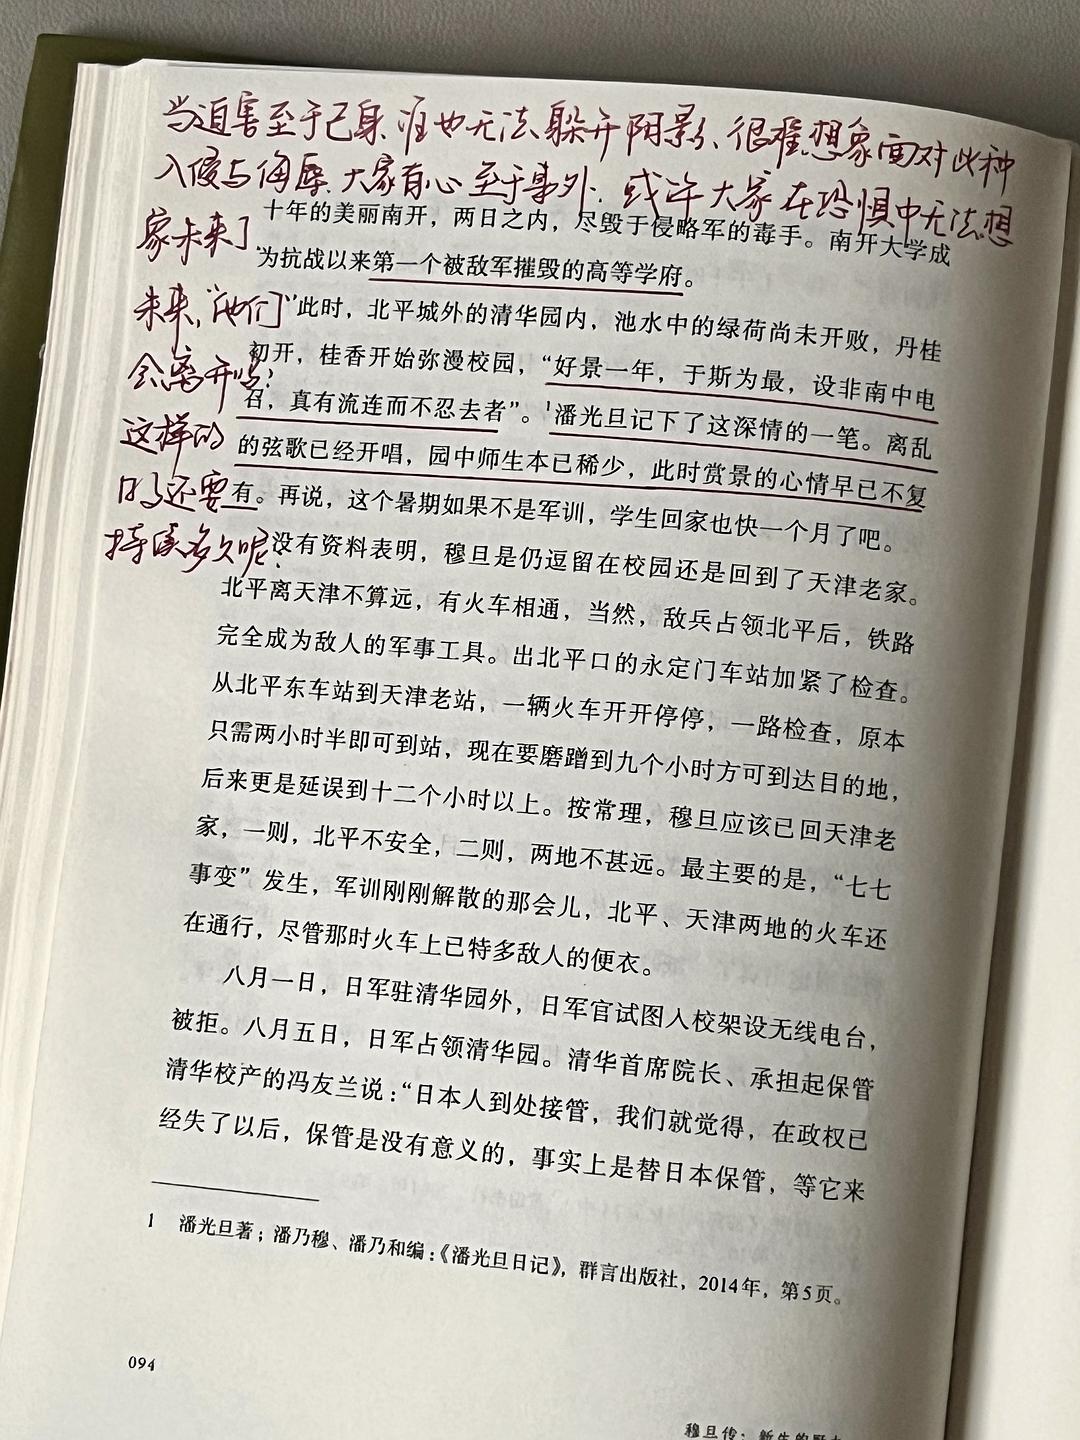 当迫害至于己身,谁也无法躲开阴影、很难想象面对此种
入侵与侮辱.大家有心至于事外.或许大家在恐惧中无法想
象未来了
未来,“他们”
会离开吗?
这样的
日子还要
持续多久呢?
十年的美丽南开，两日之内，尽毁于侵略军的毒手。南开大学成
为抗战以来第一个被敌军摧毁的高等学府。
此时，北平城外的清华园内，池水中的绿荷尚未开败，丹桂
初开，桂香开始弥漫校园，“好景一年，于斯为最，设非南中电
召，真有流连而不忍去者”。1潘光旦记下了这深情的一笔。离乱
的弦歌已经开唱，园中师生本已稀少，此时赏景的心情早已不复
有。再说，这个暑期如果不是军训，学生回家也快一个月了吧。
没有资料表明，穆旦是仍逗留在校园还是回到了天津老家。
北平离天津不算远，有火车相通，当然，敌兵占领北平后，铁路
完全成为敌人的军事工具。出北平口的永定门车站加紧了检查。
从北平东车站到天津老站，一辆火车开开停停，一路检查，原本
只需两小时半即可到站，现在要磨蹭到九个小时方可到达目的地，
后来更是延误到十二个小时以上。按常理，穆旦应该已回天津老
家，一则，北平不安全，二则，两地不甚远。最主要的是，“七七
事变”发生，军训刚刚解散的那会儿，北平、天津两地的火车还
在通行，尽管那时火车上已特多敌人的便衣。
八月一日，日军驻清华园外，日军官试图入校架设无线电台，
被拒。八月五日，日军占领清华园。清华首席院长、承担起保管
清华校产的冯友兰说：“日本人到处接管，我们就觉得，在政权已
经失了以后，保管是没有意义的，事实上是替日本保管，等它来
1 潘光旦著；潘乃穆、潘乃和编：《潘光旦日记》，群言出版社，2014年，第5页。
094
穆旦传：新生的野力